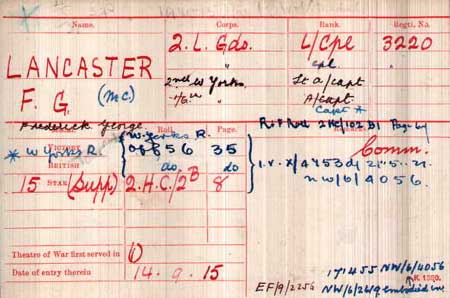 Name. Corps. Rank. Regtl. No.
LANCASTER 2. L. Gds. L/Cpl 3220
" Cpl.
2nd W Yorks Lt a/Capt
F. G. (MC) 1/6th " A/Capt.
Capt *
Frederick George.
Roll. Page. Remarks.
W. Yorks R.
VICTORY
* W Yorks R. Off 56 35 Comm.
BRITISH do do
15 STAR (Supp) 2.H.C/2B 8 NW/6/4056.
Theatre of War first served in (1)
Date of entry therein 14 . 9 . 15
171455 NW/6/4056
K 1380.
EF/9/2256 NW/6/2619 embodied in